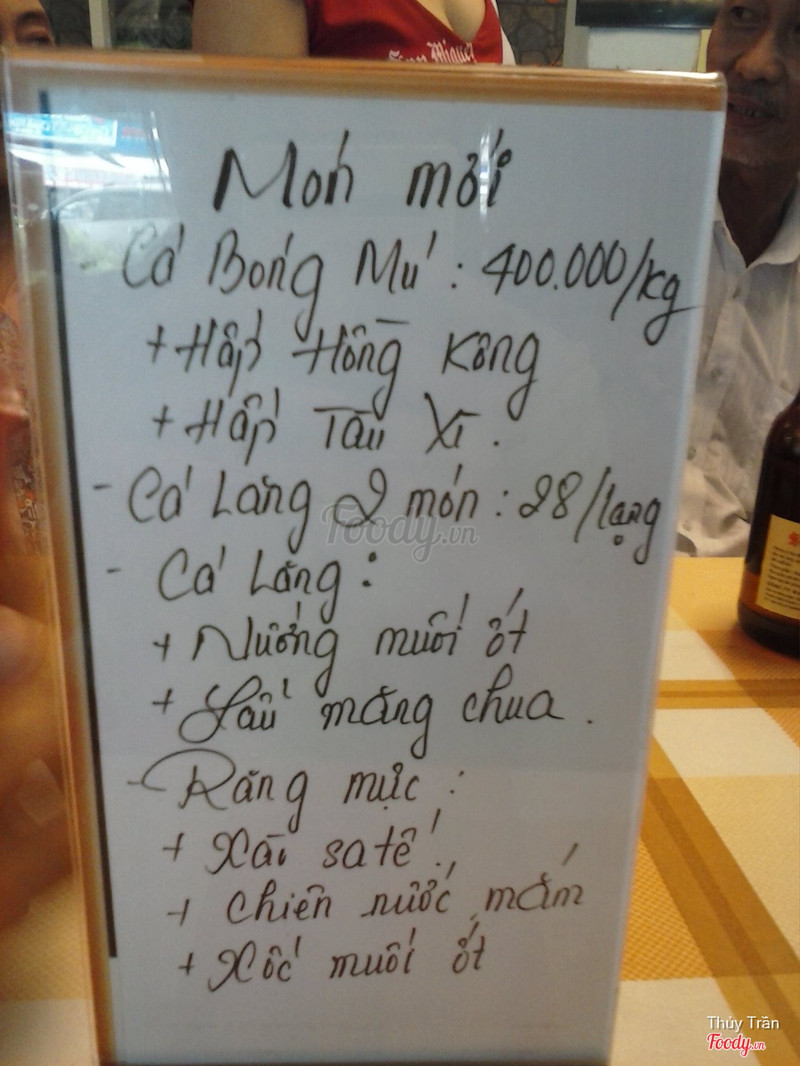 San Miguel
Món mới
- Cá Bóng Mú : 400.000/kg
+ Hấp Hồng Kông
+ Hấp Tàu Xì .
- Cá Lăng 2 món : 28/lạng
- Cá Lăng :
+ Nướng muối ớt
+ Lẩu măng chua .
- Răng mực :
+ Xài sa tế .
+ Chiên nước mắm
+ Xốc muối ớt
Foody.vn
Thủy Trần
Foody.vn